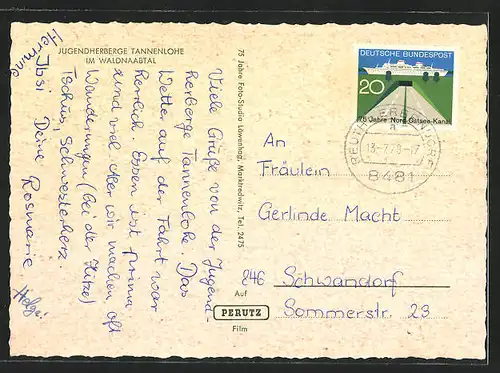 JUGENDHERBERGE TANNENLOHE
IM WALDNAABTAL
Viele Grüße von der Jugend-
herberge Tannenlohe. Das
Wetter auf der Fahrt war
herrlich. Essen ist prima
und viel. Aber wir machen oft
Wanderungen (bei der Hitze)
Tschüs, Schwesterherz.
Deine Rosmarie
Hermine
Helga
75 Jahre Foto-Studio Löwenhag, Marktredwitz, Tel. 2475
Auf
PERUTZ
Film
DEUTSCHE BUNDESPOST
20
75 Jahre Nord-Ostsee-Kanal
8481
An
Fräulein
Gerlinde Macht
846 Schwandorf
Sommerstr. 23